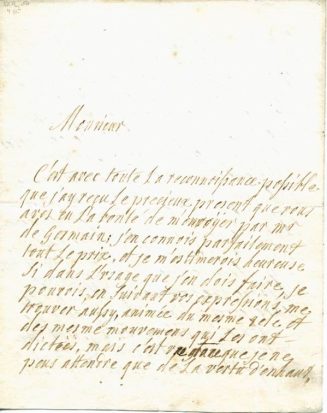 Monsieur
C'est avec toute La reconnoissance possible
que j'ay reçu Le precieux present que vous
avés eu La bonté de m'envoÿer par mr
de Germain; j'en connois parfaitement
tout Le prix, et je m'estimerois heureuse
Si dans L'usage que j'en dois faire, je
pouvois, en Suivant vos expressions, me
trouver aussy, animée du mesme zele, et
des mesme mouvemens qui Les ont
dictées, mais c'est que je ne
peus attendre que de La vertu d'enhaut,